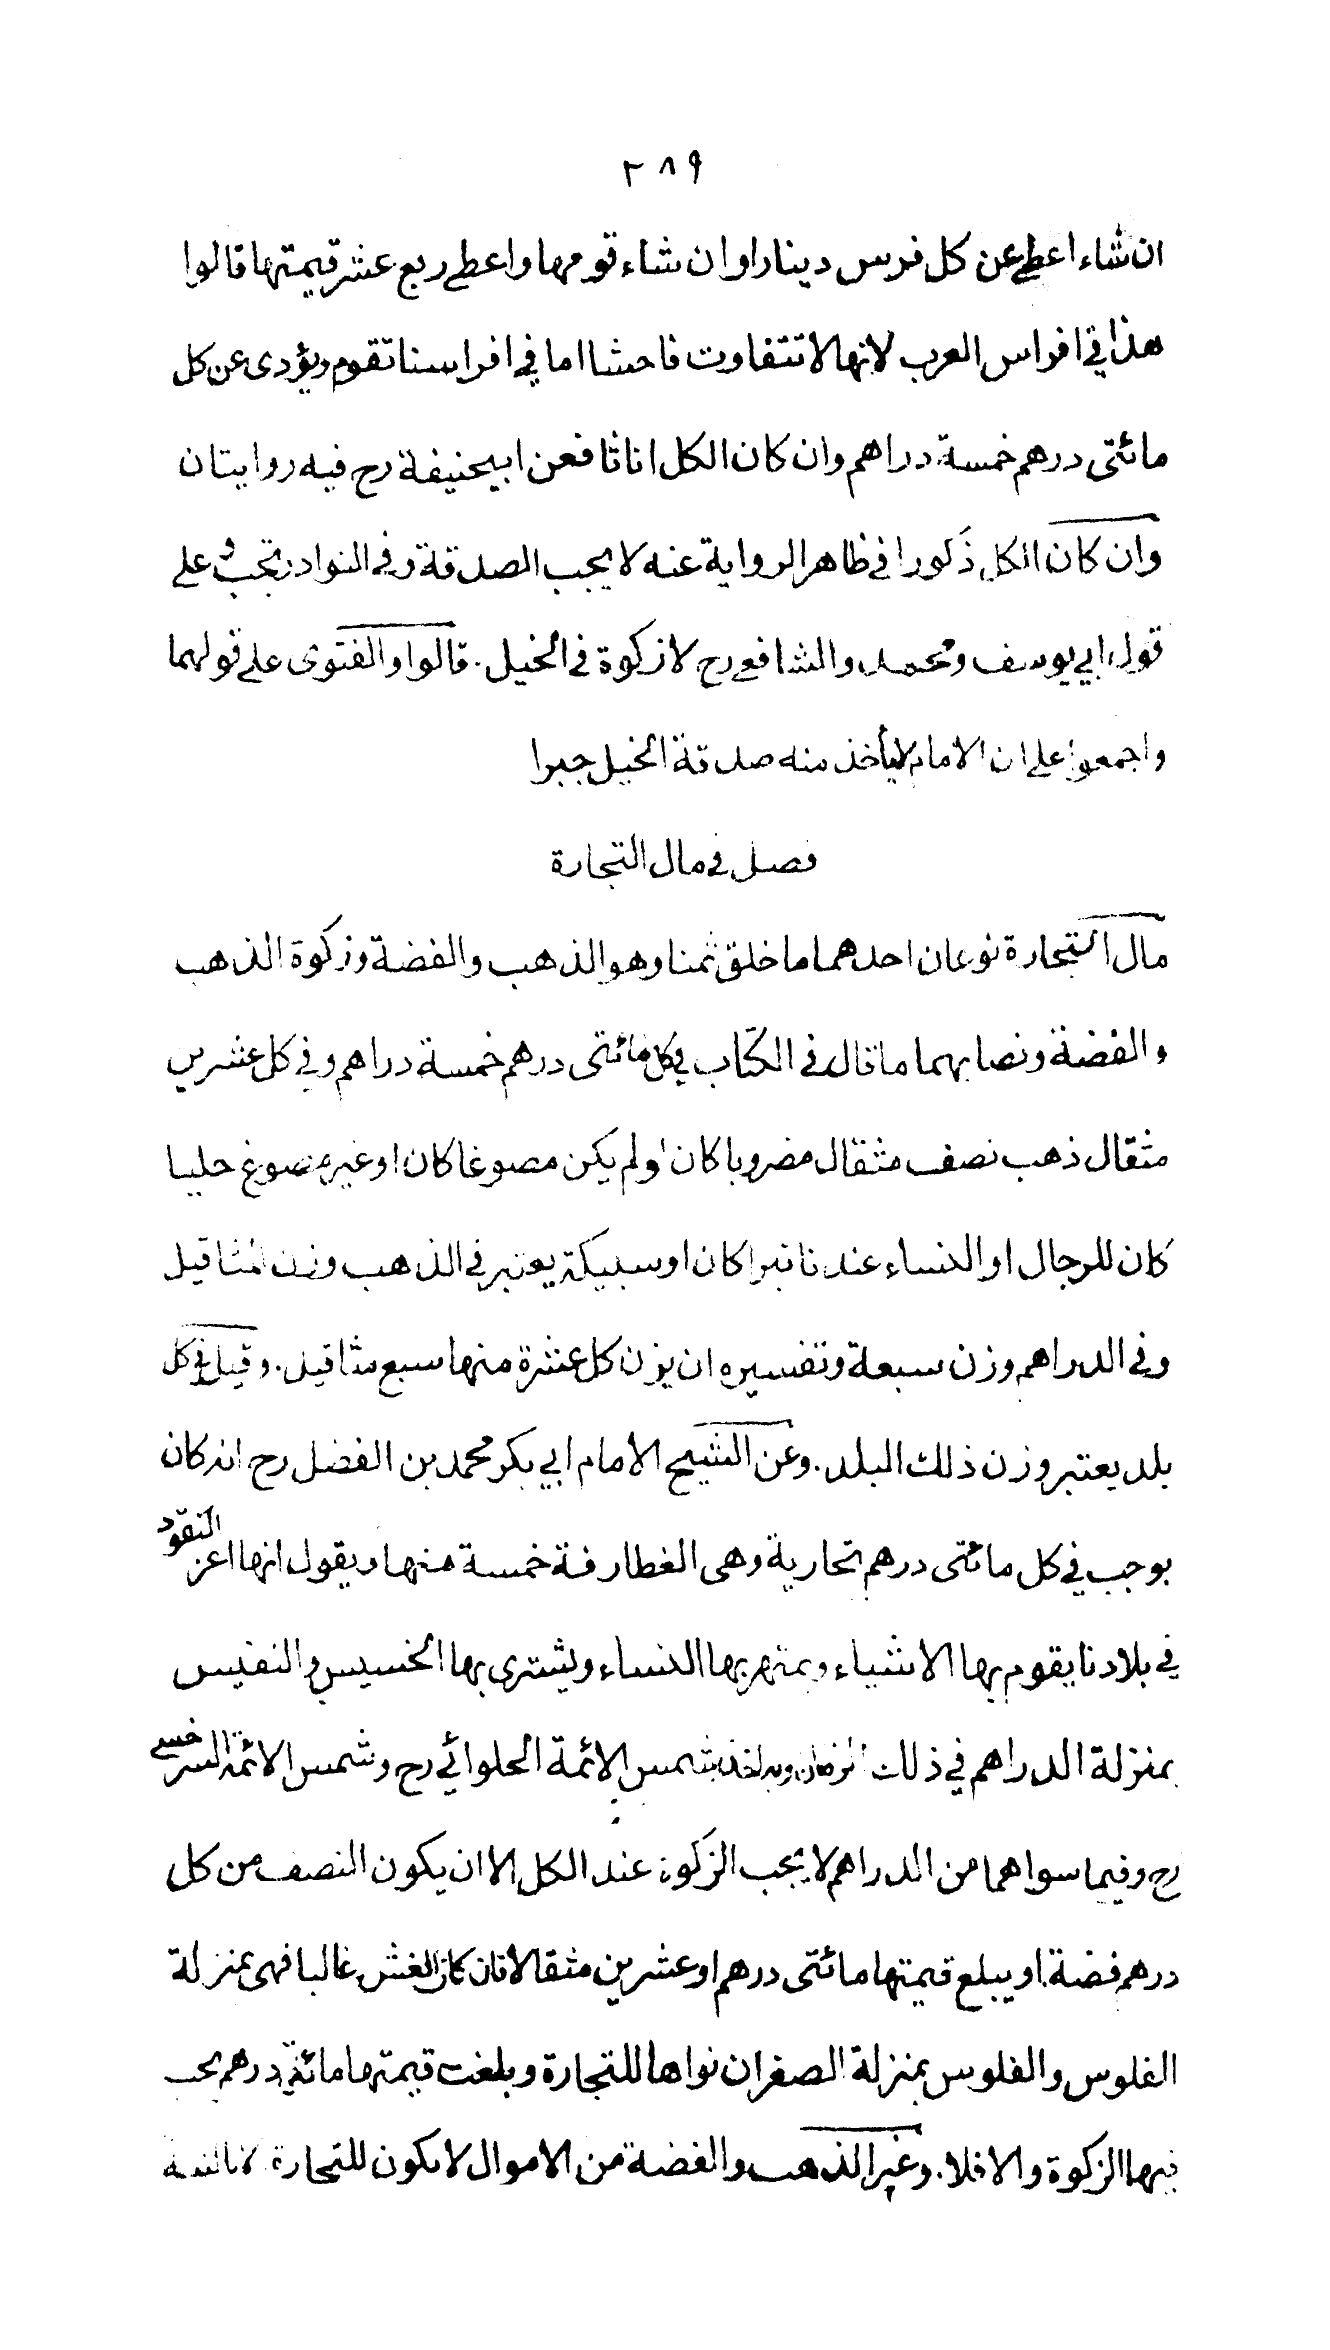 ٢٨٩
ان شاء اعطى عن كل فرس دينارا وان شاء قومها واعطى ربع عشر قيمتها قالوا
هذا في افراس العرب لانها لا تتفاوت فاحشا اما في افراسنا تقوم ويؤدى عن كل
مائتى درهم خمسة دراهم وان كان الكل اناثا فعن ابيحنيفة رح فيه روايتان
وان كان الكل ذكورا في ظاهر الرواية عنه لا يجب الصدقة وفى النوادر تجب وعلى
قول ابي يوسف ومحمد والشافعى رح لا زكوة فى الخيل. قالوا والفتوى على قولهما
واجمعوا على ان الامام لا يأخذ منه صدقة الخيل جبرا
فصل في مال التجارة
مال التجارة نوعان احدهما ما خلق ثمنا وهو الذهب والفضة وزكوة الذهب
والفضة ونصابهما ما قال فى الكتاب في كل مائتى درهم خمسة دراهم وفي كل عشرين
مثقال ذهب نصف مثقال مضروبا كان اولم يكن مصوغا كان اوغير مصوغ حليا
كان للرجال او النساء عندنا تبرا كان او سبيكة يعتبر فى الذهب وزن المثاقيل
وفى الدراهم وزن سبعة وتفسيره ان يزن كل عشرة منها سبع مثاقيل. وقيل في كل
بلد يعتبر وزن ذلك البلد. وعن الشيخ الامام ابي بكر محمد بن الفضل رح انه كان
يوجب في كل مائتى درهم بخارية وهى الغطارفة خمسة منها ويقول انها اعز النقود
في بلادنا يقوم بها الاشياء ويمتهر بها النساء ويشترى بها الخسيس والنفيس
بمنزلة الدراهم في ذلك الزمان وبه اخذ شمس الائمة الحلوائي رح وشمس الائمة السرخسى
رح وفيما سواهما من الدراهم لا يجب الزكوة عند الكل الا ان يكون النصف من كل
درهم فضة او يبلع قيمتها مائتى درهم او عشرين مثقالا فان كان الغش غالبا فهى بمنزلة
الفلوس والفلوس بمنزلة الصفر ان نواها للتجارة وبلغت قيمتها مائتى درهم يجب
فيها الزكوة والا فلا. وغير الذهب والفضة من الاموال لا يكون للتجارة الا بالنية